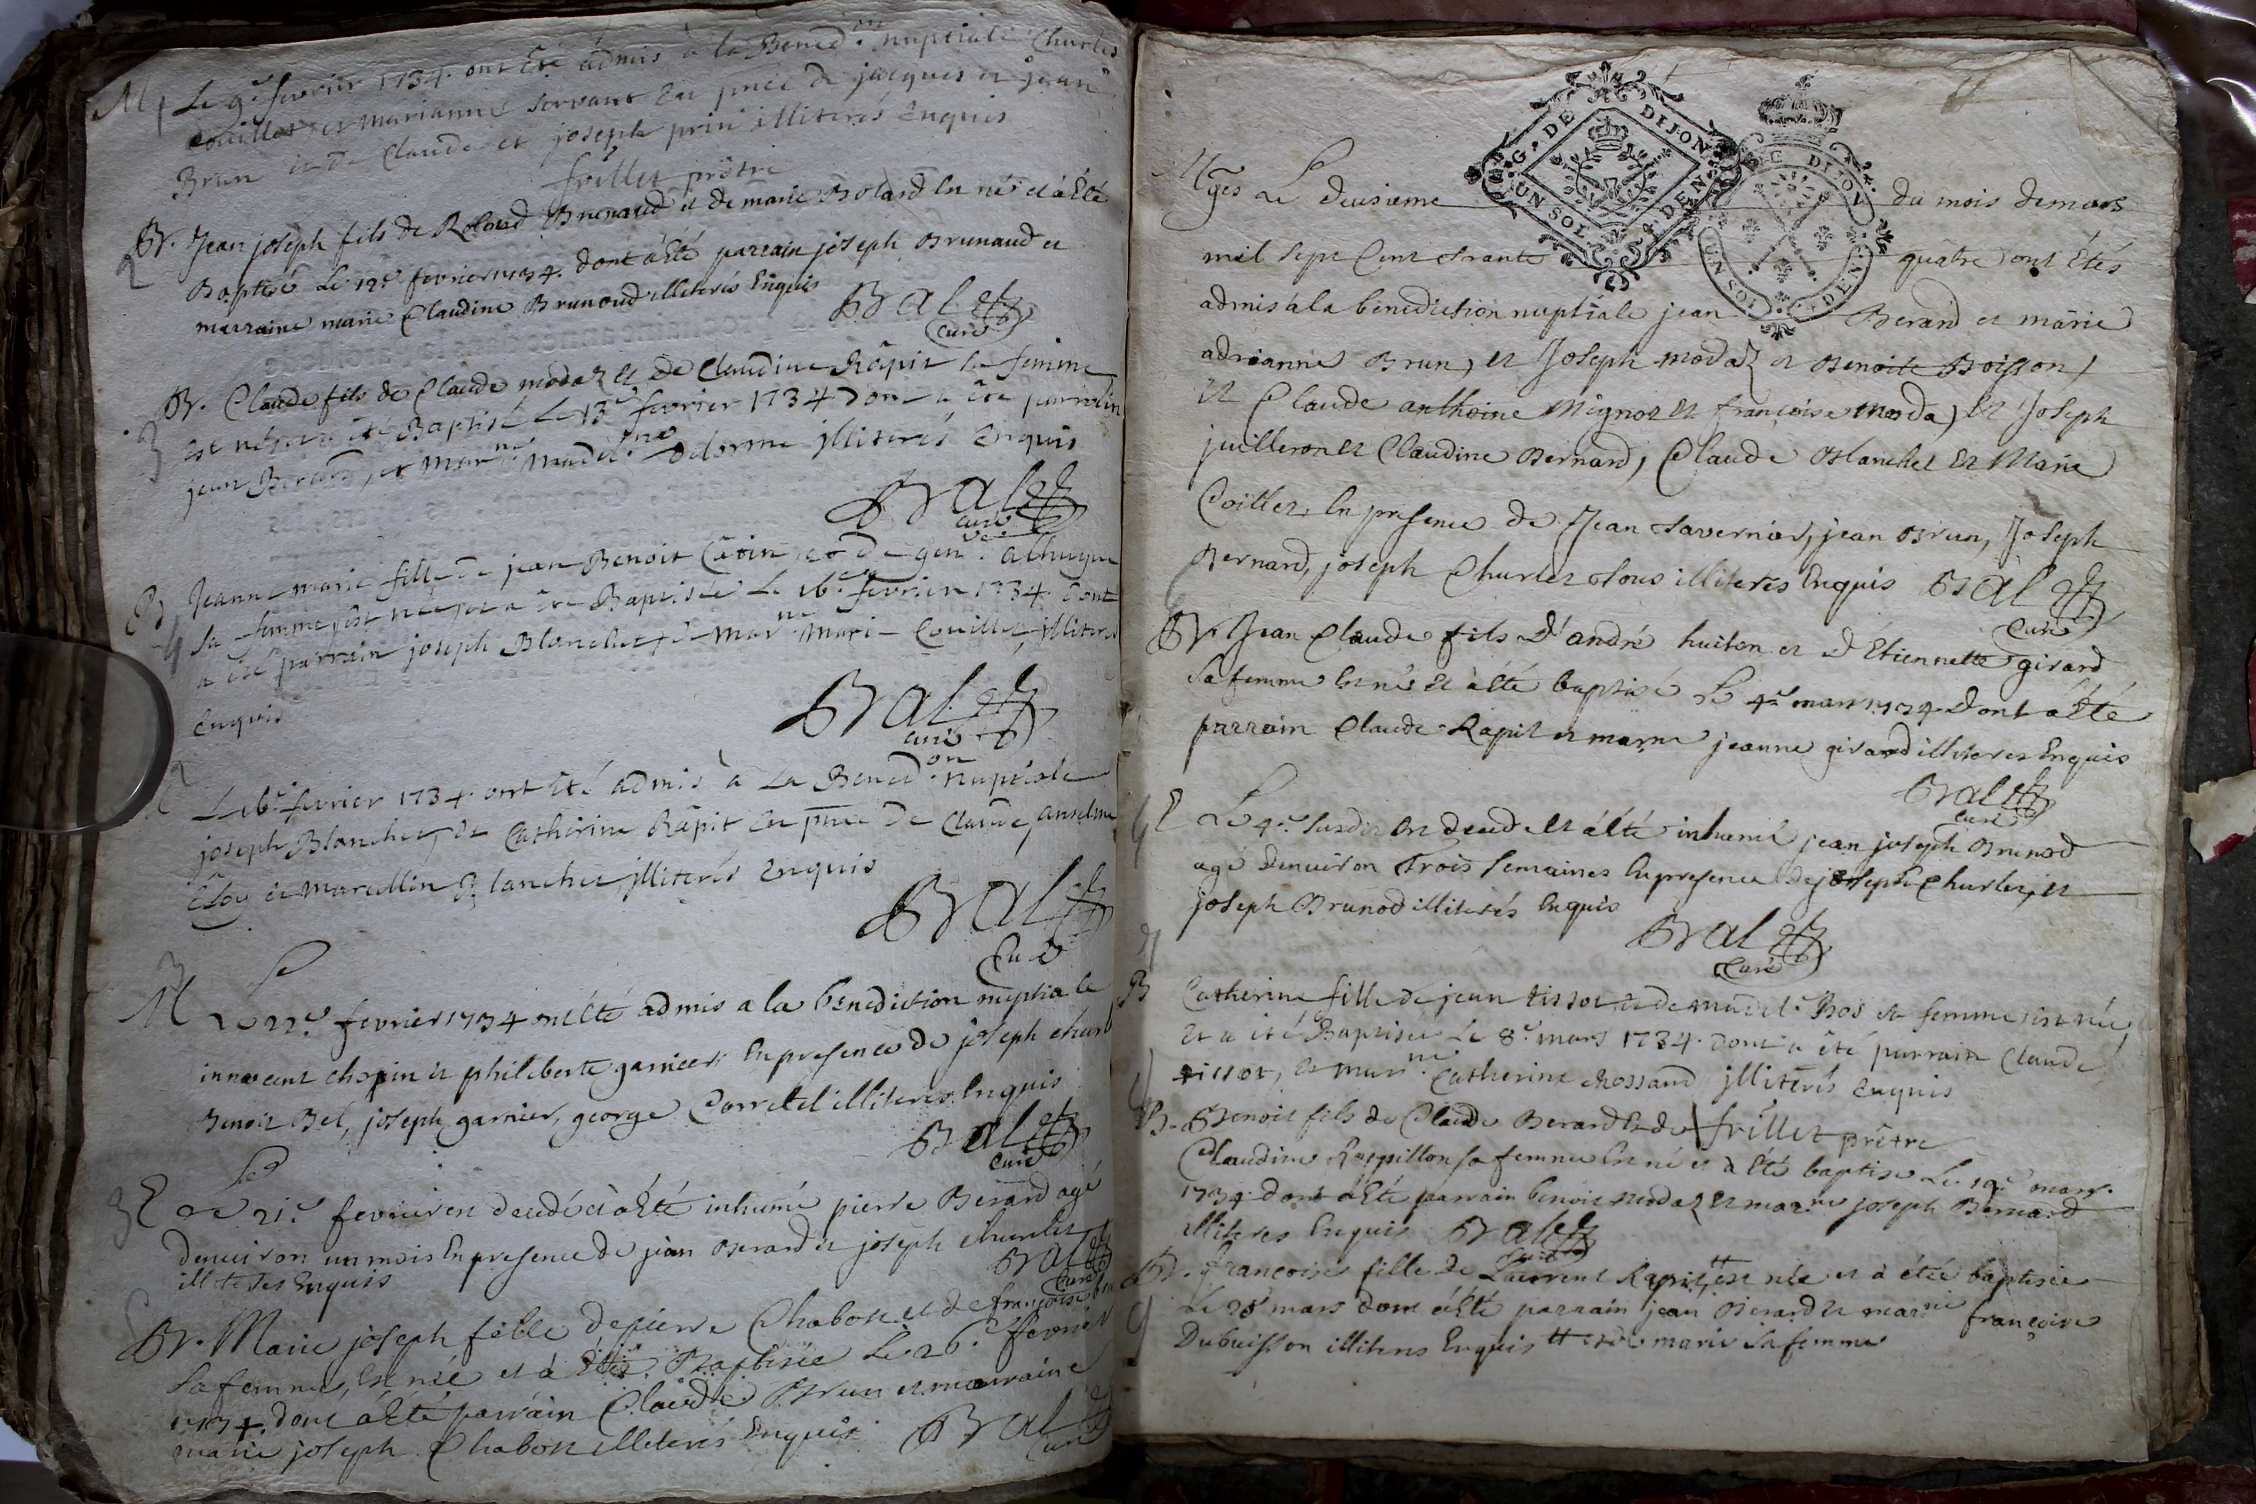 M Le 9e fevrier 1734 ont été admis à la Bened.on nuptiale Churles
Couillet et Marianne Servant En pnce de jacques et jean
Brun et de Claude et joseph prin illiterés Enquis
frillet prêtre
Br. Jean joseph fils de Roland Brunaud et de marie Bolard Est né et à Eté
2
Baptisé Le 12e fevrier 1734. dont à Eté parrain joseph Brunaud et
marraine marie Claudine Brunaud illiterés Enquis
Bralet
Curé
Br. Claude fils de Claude modaz et de Claudine Râpit sa femme
3
est né et a été Baptisé Le 13e fevrier 1734 dont a été parrain
jean Berard, et marne madelne Delorme illiterés Enquis
Bralet
curé
B Jeanne marie fille de jean Benoit Câtin et de genve.
4
sa femme est née et a été Baptisée Le 16e fevrier 1734. dont
a été parrain joseph Blanchet, et marne Marie Couillet, illiterés
Enquis
Bralet
curé
Le 16e fevrier 1734. ont été admis à La Bened.on Nuptiale
joseph Blanchet, et Catherine Râpit En pnce de Claude, anselme
Eloy et Marcellin Blanchet illiterés Enquis
Bralet
Curé
3
M Le 22e fevrier 1734 ont été admis a la benediction nuptiale
innocent chopin et philiberte garnier En presence de joseph churlet
Benoit Bel, joseph garnier, george Corretel illiteres Enquis
Bralet
Curé
3 E Le 21e fevrier est decedé et à Eté inhumé pierre Berard agé
denuiron un mois En presence de jean Berard et joseph churlet
illiteres Enquis
Bralet
Curé
Br. Marie joseph fille de pierre Chabon et de françoise
sa femme, Est née et à Eté Baptisée Le 26e fevrier
1734. dont à Eté parrain Claude Brun et marraine
marie joseph Chabon illiterés Enquis
Bralet
Curé
G. DE DIJON UN SOL 4 DEN
G. DE DIJON UN SOL 4 DEN
Mges Le deusieme du mois de mars
mil sept Cent trante quâtre ont Etés
admis a la benediction nuptiale jean Berard et mârie
adrianne Brun, et Joseph modaz et Benoite Boisson,
et Claude anthoine Mignot et françoise moda, et Joseph
juilleron et Claudine Bernard, Claude Blanchet et Marie
Coillet, En presence de Jean tavernier, jean Brun, Joseph
Bernard, joseph Churlet tous illiterés Enquis Bralet
Curé
Br. Jean Claude fils d'andré huiton et d'Etiennette girard
sa femme Est né et à Eté baptisé Le 4e mars 1734 dont à Eté
parrain Claude Rapit et marne jeanne girard illiteres Enquis
Bralet
Curé
4 E Le 4e susdit Est decedé et à Eté inhumé jean joseph Brunod
agé denuiron trois semaines En presence de joseph Churlet, et
joseph Brunod illiterés Enquis
Bralet
Curé
B Catherine fille de jean tissot et de madele. Bos sa femme est née,
et a été Baptisée Le 8e mars 1734. dont a été parrain Claude
tissot, et marne Catherine Chossand illiterés Enquis
frillet prêtre
B. Benoit fils de Claude Berard et de
Claudine Roquillon sa femme Est né et à Eté baptisé Le 19e mars
1734 dont à Eté parrain benoit modaz et marne joseph Bernard
illiteres Enquis Bralet
Curé
Br. françoise fille de Laurent Rapit, tt est née et à étée baptisée
9 Le 28e mars dont à Eté parrain jean Berard et marne françoise
Dubuisson illiteres Enquis tt et de marie sa femme